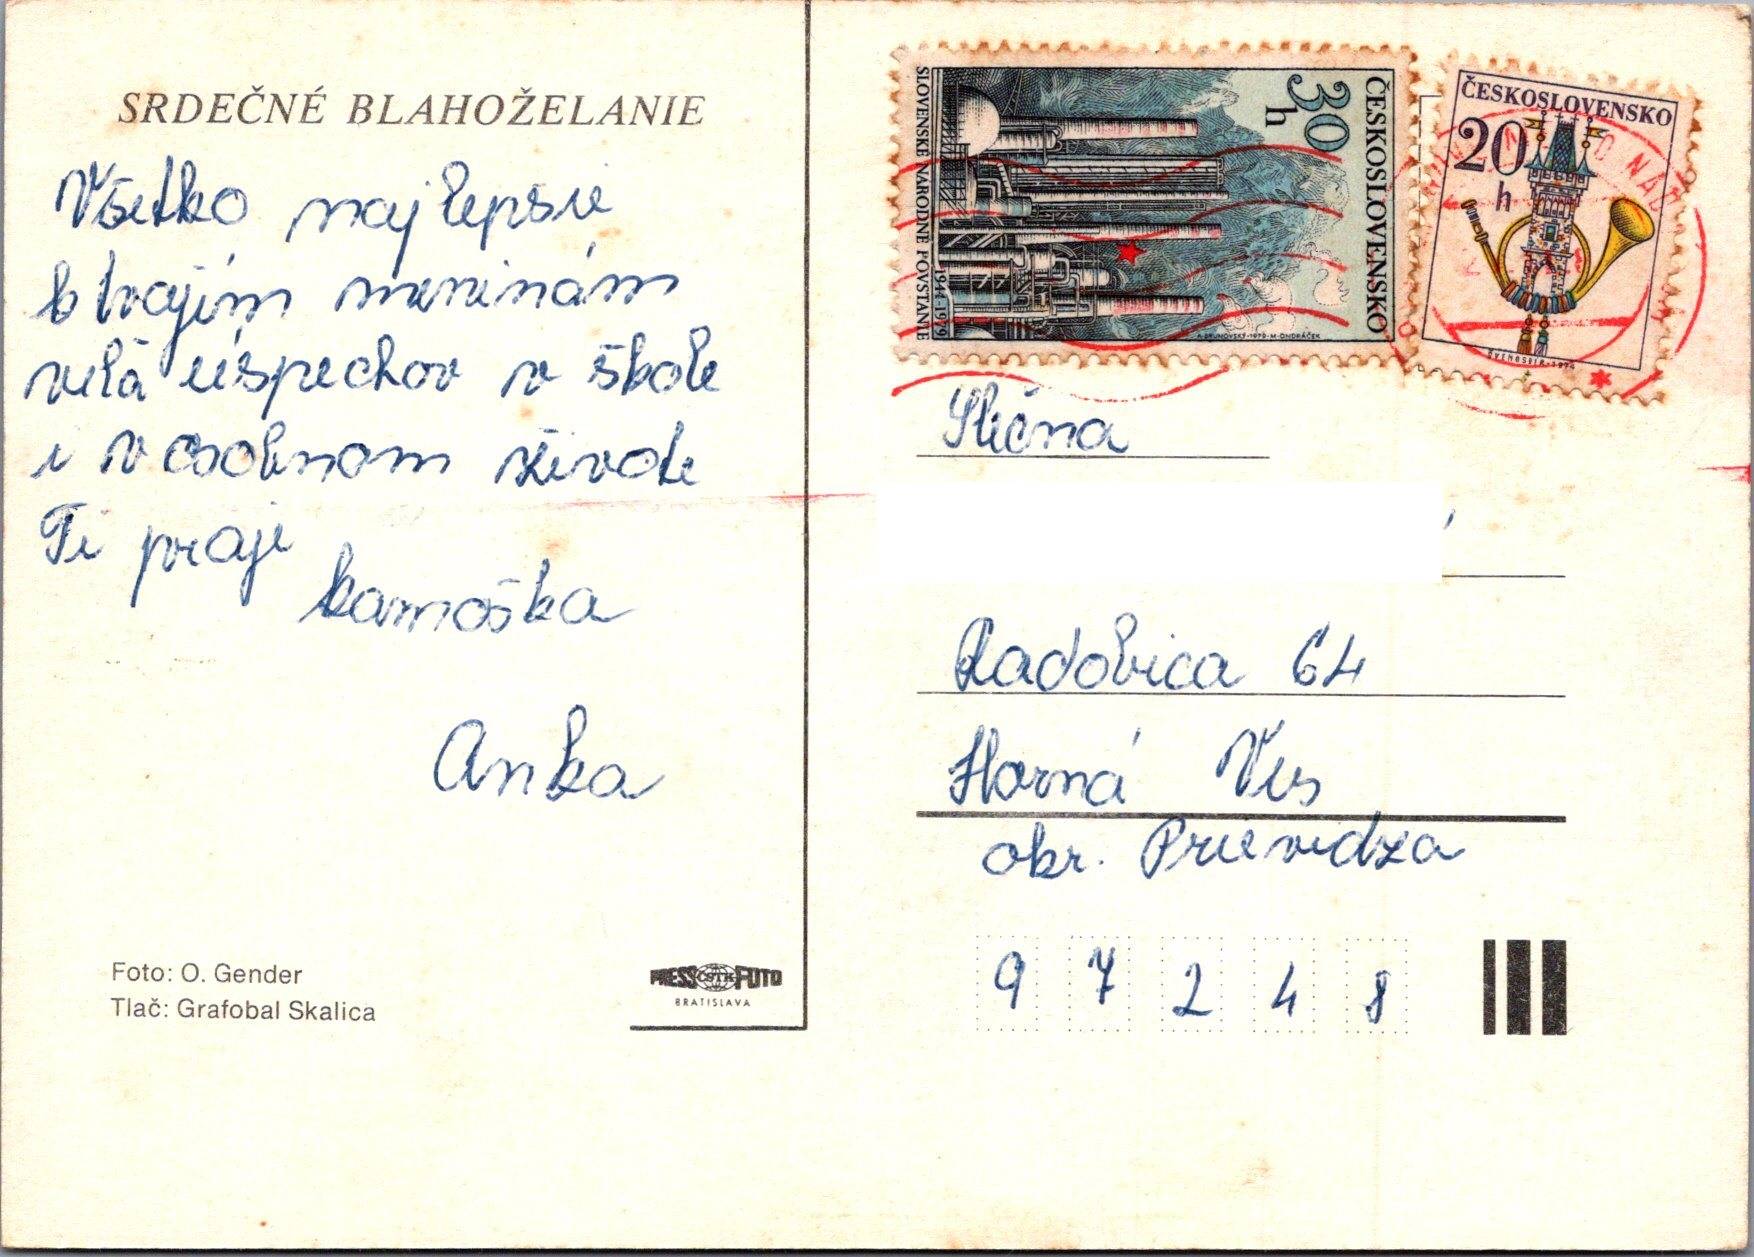 SRDEČNÉ BLAHOŽELANIE
Všetko najlepšie
k tvojím meninám
veľa úspechov v škole
i v osobnom živote
Ti praje
kamoška
Anka
Foto: O. Gender
Tlač: Grafobal Skalica
PRESS ČSTK FOTO
BRATISLAVA
SLOVENSKÉ NÁRODNÉ POVSTANIE 1944-1979
30 h
ČESKOSLOVENSKO
A. BRUNOVSKÝ-1979-M. ONDRÁČEK
ČESKOSLOVENSKO
20 h
ŠVENGSBÍR-1974
Slečna
Radobica 64
Horná Ves
okr. Prievidza
9 7 2 4 8